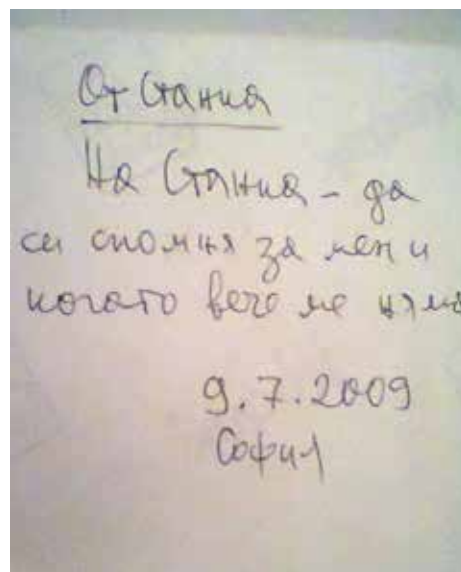 От Станка
На Станка - да
си спомня за мен и
когато вече ме няма
9.7.2009
София